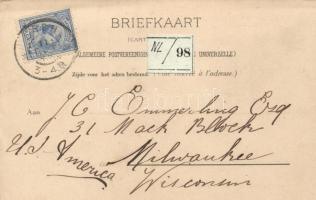 BRIEFKAART
(ALGEMEENE POSTVEREENIGING UNIVERSELLE)
NL/98
3-4N
Zijde voor het adres bestemd. à l'adresse.)
Aan J. C. Emmerling Esq
31 Mack Block
U.S. America Milwaukee
Wisconsin